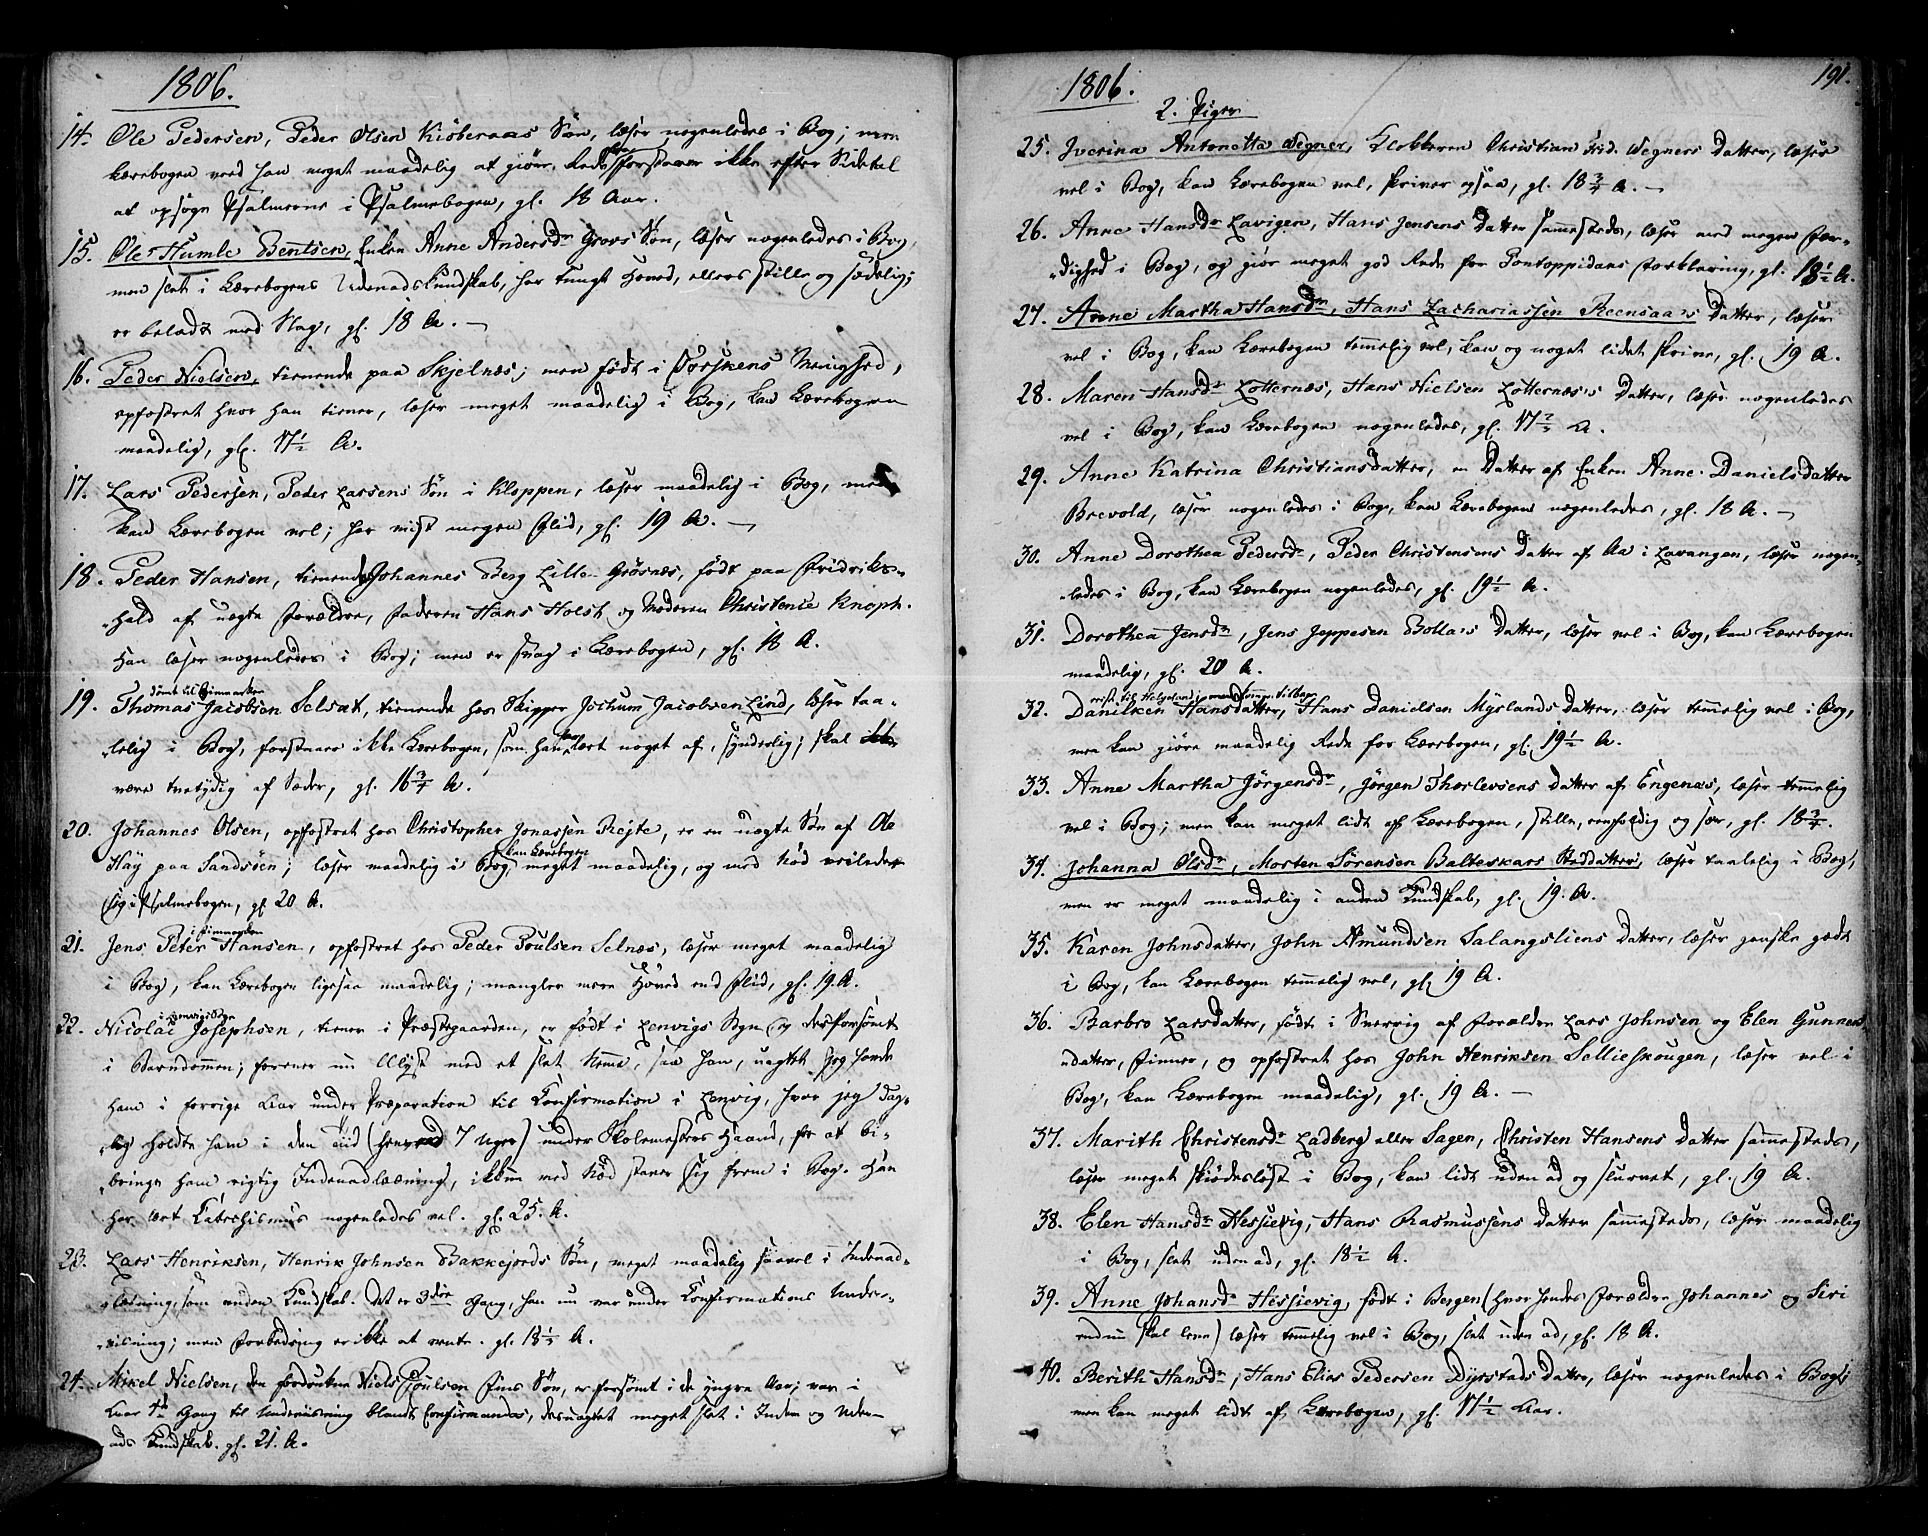 1806.
14. Ole Pedersen, Peder Olsen Kiöbernæs Søn, læser nogenledes i Bog; men
Lærebogen veed han meget maadelig at giøre Rede for, forstaaer ikke efter Sidetal
at opsøge Psalmerne i Psalmebogen, gl. 18 Aar.
15. Ole Humle Bentsen, Enken Anne Andersdr Grovs Søn, læser nogenledes i Bog,
men slet i Lærebogens Udenadskundskab, har tungt Hoved, ellers stille og sædelig;
er beladt med Slag, gl. 18 A. —
16. Peder Nielsen, tienende paa Skjelnæs; men født i Torskens Menighed,
opfostret hvor han tiener, læser meget maadelig i Bog, kan Lærebogen
maadelig, gl. 17½ A.
17. Lars Pedersen, Peder Larsens Søn i Kloppen, læser maadelig i Bog, men
kan Lærebogen vel; har viist megen Flid, gl. 19 A. —
18. Peder Hansen, tienende Johannes Berg Lille-Grösnæs, født paa Fridriks-
-hald af uægte Forældre, Faderen Hans Holst og Moderen Christence Knoph.
Han læser nogenledes i Bog; men er svag i Lærebogen, gl. 18 A.
dömt til Finmarken
19. Thomas Jacobsen Selsæt, tienende hos Skipper Jochum Jacobsen Lind, læser taa-
-lelig i Bog, forstaaer ikke Lærebogen, som han har lært noget af, synderlig; skal
være tvetydig af Sæder, gl. 16¾ A.
20. Johannes Olsen, opfostret hos Christopher Jonassen Rejte, er en uægte Søn af Ole
Haÿ paa Sandsöen; læser maadelig i Bog, kan Lærebogen meget maadelig, og med Nød veileder
sig i Psalmebogen, gl. 20 A.
i Finmarken
21. Jens Peter Hansen, opfostret hos Peder Poulsen Selnæs, læser meget maadelig
i Bog, kan Lærebogen ligesaa maadelig; mangler mere Hoved end Flid, gl. 19. A.
22. Nicolai Josephsen, tiener i Præstegaarden, er født i Lenvigs Sogn og der forsömt
i Barndommen; forener nu Ulyst med et slet Nemme, saa han, uagtet jeg havde
ham i forrige Aar under Præparation til Confirmation i Lenvig, hvor jeg dag-
-lig holdte ham i den Tiid (henved 7 Uger) under Skolemesters Haand, for at bi-
-bringe ham rigtig Indenadlæsning, ikkun med Nød staver sig frem i Bog. Han
har lært Catechismus nogenledes vel. gl. 25. A.
23. Lars Henriksen, Henrik Johnsen Bakkejords Søn, meget maadelig saavel i Indenad-
-læsning, som anden Kundskab. Det er 3die Gang, han nu var under Confirmations Under-
-viisning; men Forbedring er ikke at vente. gl. 18½ A.
24. Mikel Nielsen, den fordrukne Niels Poulsen Fins Søn, er forsömt i de yngre Aar; var i
Aar 1ste Gang til Underviisning blandt Confirmander, desuagtet meget slet i Inden og Uden-
ads Kundskab. gl. 21. A.
191.
1806.
2. Piger
25. Iverina Antonetta Wegner, Klokkeren Christian Frid. Wegners Datter, læser
vel i Bog, kan Lærebogen vel, skriver ogsaa, gl. 18¾ A. —
26. Anne Hansdr Lavigen, Hans Jensens Datter sammesteds, læser med megen Fær-
-dighed i Bog, og giør meget god Rede for Pontoppidans Forklaring, gl. 18½ A.
27. Anne Martha Hansdr, Hans Zachariassen Reensaa's Datter, læser
vel i Bog, kan Lærebogen temmelig vel, kan og noget lidet skrive, gl. 19 A.
28. Maren Hansdr Lotternæs, Hans Nielsen Lotternæs's Datter, læser nogenledes
vel i Bog, kan Lærebogen nogenledes, gl. 17½ A.
29. Anne Katrina Christiansdatter, en Datter af Enken Anne Danielsdatter
Brevold, læser nogenledes i Bog, kan Lærebogen nogenledes, gl. 18 A. —
30. Anne Dorothea Pedersdr, Peder Christensens Datter af Aa i Lavangen, læser nogen-
-ledes i Bog, kan Lærebogen nogenledes, gl. 19½ A.
31. Dorothea Jensdr, Jens Jeppesen Bolla's Datter, læser vel i Bog, kan Lærebogen
maadelig, gl. 20 A.
reist til Helgeland; men kommen tilbage
32. Danilken Hansdatter, Hans Danielsen Myslands Datter, læser temmelig vel i Bog,
men kan giøre maadelig Rede for Lærebogen, gl. 19½ A.
33. Anne Martha Jörgensdr, Jörgen Thorlevsens Datter af Engenæs, læser temmelig
vel i Bog; men kan meget lidt af Lærebogen, stille, eenfoldig og sær, gl. 18¾.
34. Johanna Olsdr, Morten Sörensen Balteskars Steddatter, læser taalelig i Bog,
men er meget maadelig i anden Kundskab, gl. 19. A.
35. Karen Johnsdatter, John Amundsen Salangsliens Datter, læser ganske godt
i Bog, kan Lærebogen temmelig vel, gl. 19 A.
36. Barbro Larsdatter, født i Snervig af Forældre Lars Johnsen og Elen Gunners-
-datter, Finner, og opfostret hos John Henriksen Sellieskougen, læser vel i
Bog, kan Lærebogen maadelig, gl. 19 A. —
37. Marith Christensdr Ladberg eller Sagen, Christen Hansens Datter sammesteds,
læser meget skiødesløst i Bog, kan lidt udenad og slurvet, gl. 19 A.
38. Elen Hansdr Hessievig, Hans Rasmussens Datter sammesteds, læser maadelig
i Bog, slet udenad, gl. 18½ A.
39. Anne Johansdr Hessievig, født i Bergen (hvor hendes Forældre Johannes og Siri
endnu skal leve) læser temmelig vel i Bog, slet udenad, gl. 18 A.
40. Berith Hansdr, Hans Elias Pedersen Dyrstads Datter, læser nogenledes i Bog;
men kan meget lidt af Lærebogen, gl. 17½ Aar.